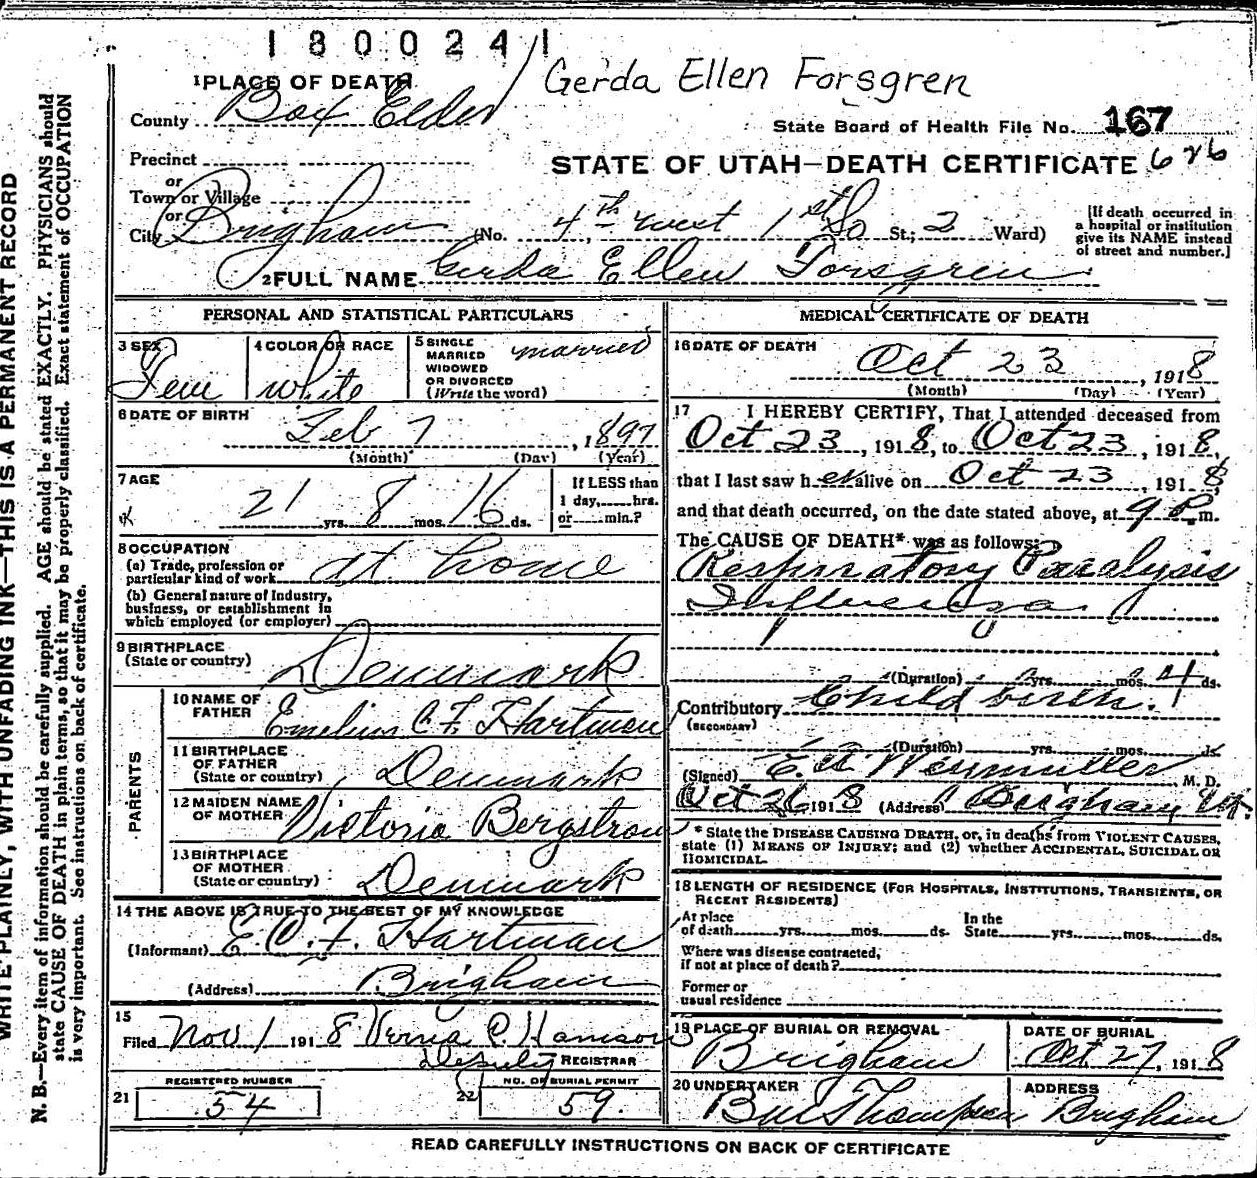 1800241
Gerda Ellen Forsgren
1 PLACE OF DEATH
County Box Elder
State Board of Health File No. 167
Precinct
STATE OF UTAH—DEATH CERTIFICATE 626
or
Town or Village
or
City Brigham (No. 4th west 1st So St.; 2 Ward)
[If death occurred in
a hospital or institution
give its NAME instead
of street and number.]
2 FULL NAME Gerda Ellen Forsgren
PERSONAL AND STATISTICAL PARTICULARS
3 SEX
Fem
4 COLOR OR RACE
white
5 SINGLE
MARRIED
WIDOWED
OR DIVORCED
(Write the word)
married
6 DATE OF BIRTH
Feb 7, 1897
(Month) (Day) (Year)
7 AGE
21 yrs. 8 mos. 16 ds.
If LESS than
1 day, hrs.
or min.?
8 OCCUPATION
(a) Trade, profession or
particular kind of work at home
(b) General nature of Industry,
business, or establishment in
which employed (or employer)
9 BIRTHPLACE
(State or country) Denmark
PARENTS
10 NAME OF
FATHER Emelius C F Hartman
11 BIRTHPLACE
OF FATHER
(State or country) Denmark
12 MAIDEN NAME
OF MOTHER Victoria Bergstrom
13 BIRTHPLACE
OF MOTHER
(State or country) Denmark
14 THE ABOVE IS TRUE TO THE BEST OF MY KNOWLEDGE
(Informant) E. C. F. Hartman
(Address) Brigham
15
Filed Nov 1 1918
Deputy REGISTRAR
REGISTERED NUMBER
21 54
NO. OF BURIAL PERMIT
22 59.
MEDICAL CERTIFICATE OF DEATH
16 DATE OF DEATH
Oct 23, 1918
(Month) (Day) (Year)
17 I HEREBY CERTIFY, That I attended deceased from
Oct 23, 1918, to Oct 23, 1918,
that I last saw her alive on Oct 23, 1918,
and that death occurred, on the date stated above, at 9 P.m.
The CAUSE OF DEATH* was as follows:
Respiratory Paralysis
Influenza
(Duration) yrs. mos. 4 ds.
Contributory Child birth.
(SECONDARY)
(Duration) yrs. mos. ds.
(Signed) M. D.
Oct 26 1918 (Address) Brigham Ut.
* State the DISEASE CAUSING DEATH, or, in deaths from VIOLENT CAUSES,
state (1) MEANS OF INJURY; and (2) whether ACCIDENTAL, SUICIDAL OR
HOMICIDAL.
18 LENGTH OF RESIDENCE (FOR HOSPITALS, INSTITUTIONS, TRANSIENTS, OR
RECENT RESIDENTS)
At place
of death yrs. mos. ds.
In the
State yrs. mos. ds.
Where was disease contracted,
if not at place of death?
Former or
usual residence
19 PLACE OF BURIAL OR REMOVAL
Brigham
DATE OF BURIAL
Oct 27, 1918
20 UNDERTAKER
Thompson
ADDRESS
Brigham
READ CAREFULLY INSTRUCTIONS ON BACK OF CERTIFICATE
WRITE PLAINLY, WITH UNFADING INK—THIS IS A PERMANENT RECORD
N. B.—Every item of information should be carefully supplied. AGE should be stated EXACTLY. PHYSICIANS should
state CAUSE OF DEATH in plain terms, so that it may be properly classified. Exact statement of OCCUPATION
is very important. See instructions on back of certificate.